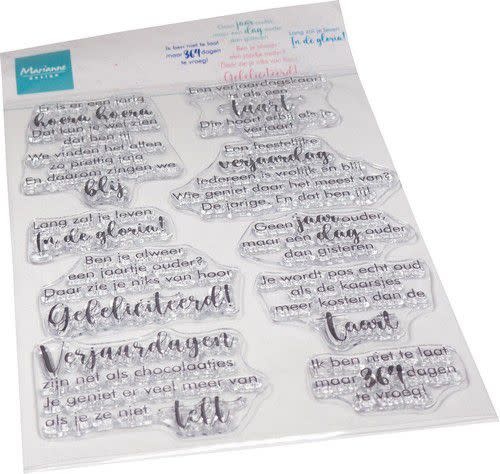 Marianne
DESIGN
Ik ben niet te laat
maar 364 dagen
te vroeg!
Geen jaar ouder
maar een dag ouder
dan gisteren
Ben je alweer
een jaartje ouder?
Daar zie je niks van hoor
Gefeliciteerd!
Lang zal je leven
In de gloria!
Er is er een jarig
hoera hoera
Dat kun je wel zien
dat ben jij!
We vinden het allen
zo prettig
En daarom zingen we
blij
Lang zal je leven
In de gloria!
Ben je alweer
een jaartje ouder?
Daar zie je niks van hoor
Gefeliciteerd!
Verjaardagen
zijn net als chocolaatjes
Je geniet er veel meer van
als je ze niet telt
Een verjaardagskaart
is als een
taart
Die hoort erbij als je
verjaart
Een feestelijke
verjaardag
Iedereen is vrolijk en blij
Wie geniet daar het meest van?
De jarige. En dat ben jij!
Geen jaar ouder
maar een dag ouder
dan gisteren
Je wordt pas echt oud
als de kaarsjes
meer kosten dan de
taart
Ik ben niet te laat
maar 364 dagen
te vroeg!